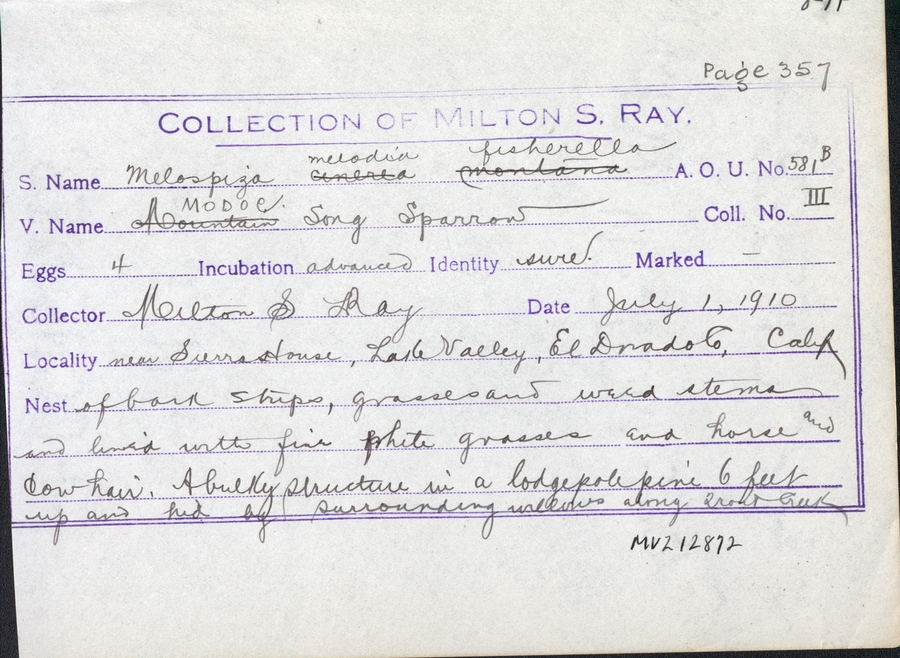 Page 357
COLLECTION OF MILTON S. RAY.
melodia fisherella
S. Name Melospiza cinerea montana A. O. U. No. 581 B
MODOC.
V. Name Mountain Song Sparrow Coll. No. III
Eggs 4 Incubation advanced Identity sure. Marked —
Collector Milton S Ray Date July 1, 1910
Locality near Sierra House, Lake Valley, El Dorado Co, Calif
Nest of bark strips, grasses and weed stems
and lined with fine white grasses and horse and
Cow hair. A bulky structure in a lodgepole pine 6 feet
up and hid by surrounding willows along Trout Creek
MVZ 12872